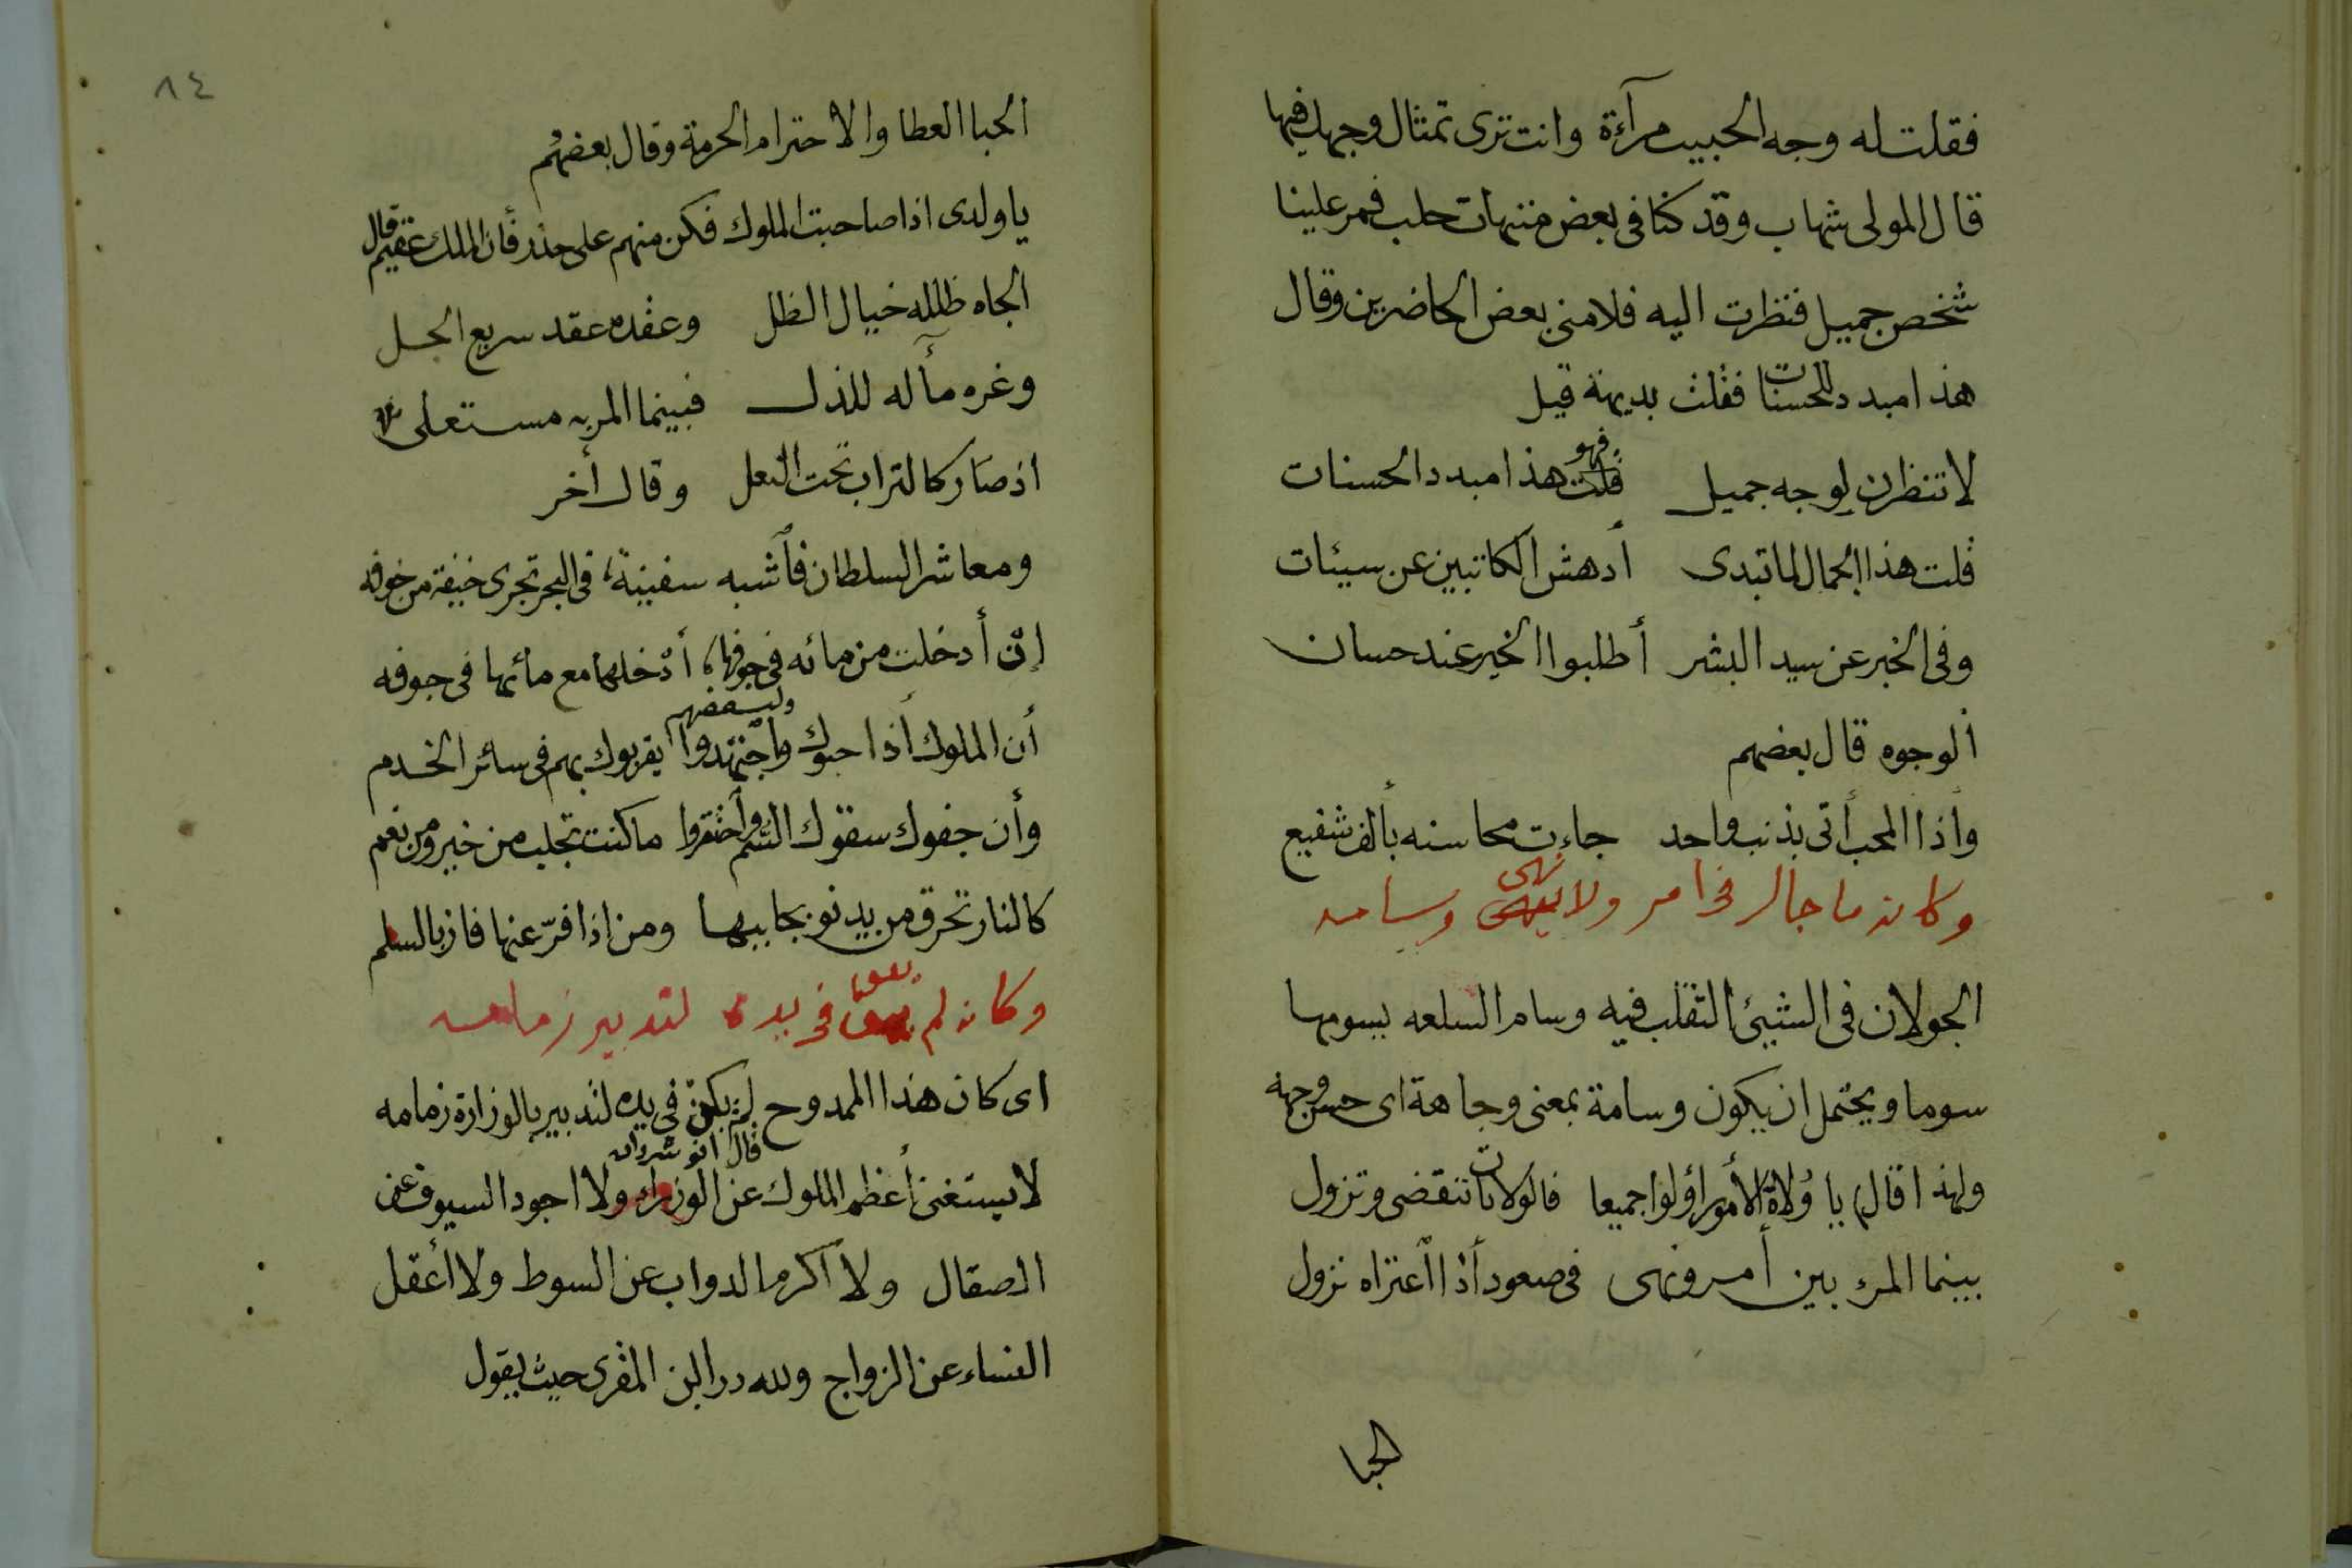 فقلت له وجه الحبيب مرآءة وانت ترى تمثال وجهك فيها
قال المولى شهاب وقد كنا فى بعض منتزهات حلب فمر علينا
شخص جميل فنظرت اليه فلامنى بعض الحاضرين وقال
هذا مبدد للحسنات فقلت بديهة قيل
لا تنظرن لوجه جميل فهو هذا مبدد الحسنات
قلت هذا الجمال لما تبدى أدهش الكاتبين عن سيئات
وفى الخبر عن سيد البشر أطلبوا الخير عند حسان
ألوجوه قال بعضهم
وأذا المحب أتى بذنب واحد جاءت محاسنه بألف شفيع
وكانه ما جال فى امر ولا نهى وسامه
الجولان فى الشيئ التقلب فيه وسام السلعه يسومها
سوما ويحتمل ان يكون وسامة بمعنى وجاهة اى حسن وجهه
ولهذا قال يا وُلاة الأمور أولوا جميعا فالولايات تنقضى وتزول
بينما المرء بين أمر ونهى فى صعود أذا أعتراه نزول
الحبا
٨٤
الحبا العطا والاحترام الحرمة وقال بعضهُم
يا ولدى اذا صاحبت الملوك فكن منهم على حذر فأن الملك عقيم قال
الجاه ظلله خيال الظل وعقده عقد سريع الحل
وغره مآله للذل فبينما المر به مستعلى
اذ صَار كالتراب تحت النعل وقال أخر
ومعاشر السلطان فأشبه سفينة، فى البحر تجرى خيفة من خوفه
إن أدخلت من مائه فى جوفها، أدخلها مع مائها فى جوفه
أن الملوك أذا حبوك واجتهدوا يقربوك بهم فى سائر الخدم
وأن جفوك سقوك السّم وأحتقروا ما كنت تجلب من خير ومن نعم
كالنار تحرق من يدنو بجانبها ومن اذا فرّ عنها فاز بالسلم
وكانه لم فى يده لتدبير زمامه
اى كان هذا الممدوح لم يكن فى يده لتدبير بالوزارة زمامه
قال انو شروان
لا يستغنى أعظم الملوك عن الوزراء ولا اجود السيوف عن
الصقال ولا أكرم الدواب عن السوط ولا أعقل
النساء عن الزواج ولله در ابن المقرى حيث يقول